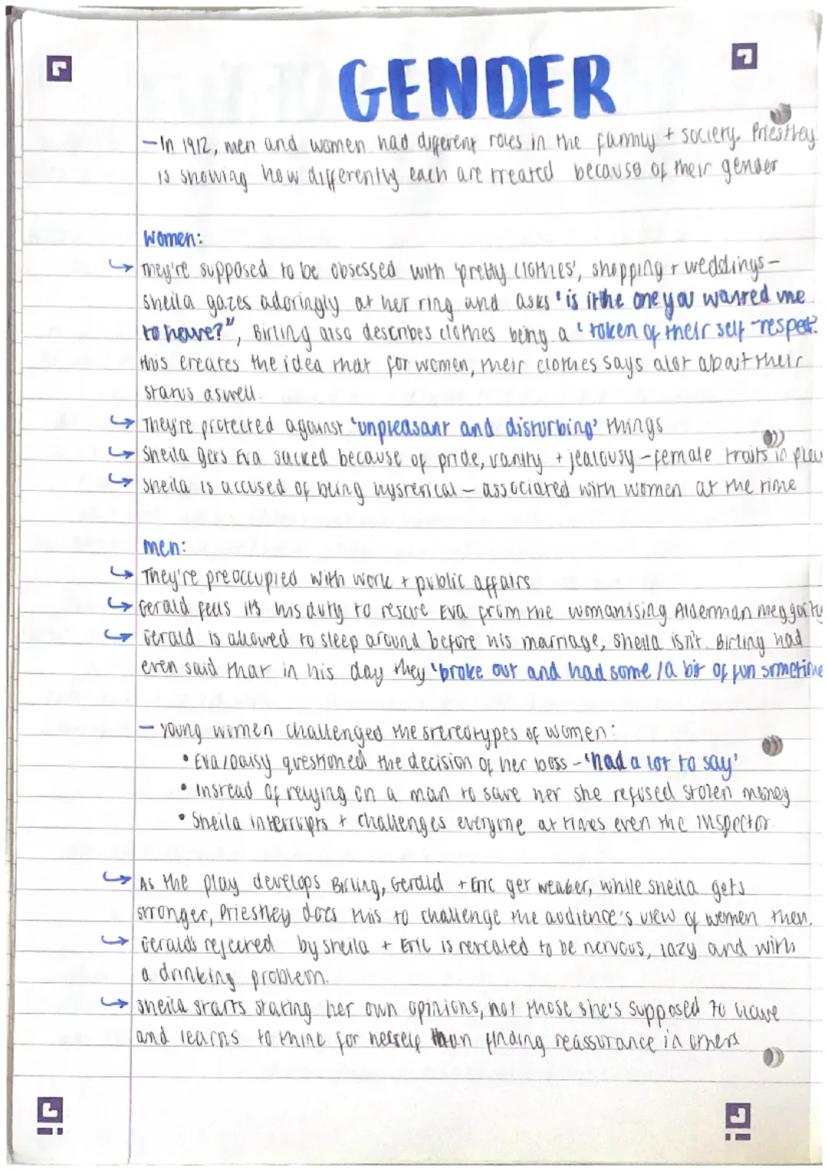 GENDER
- In 1912, men and women had different roles in the family + society. Priestley
is showing how differently each are treated because of their gender
Women:
They're supposed to be obsessed with 'pretty clothes', shopping + weddings -
Sheila gazes adoringly at her ring and asks 'is it the one you wanted me
to have?", Birling also describes clothes being a 'token of their self-respect'.
this creates the idea that for women, their clothes says alot about their
status aswell.
They're protected against 'unpleasant and disturbing' things
Sheila gets Eva sacked because of pride, vanity + jealousy - female traits in play
Sheila is accused of being hysterical - associated with women at the time
men:
They're preoccupied with work + public affairs
Gerald feels it's his duty to rescue Eva from the womanising Alderman meggarty
Gerald is allowed to sleep around before his marriage, Sheila isn't. Birling had
even said that in his day they 'broke out and had some / a bit of fun sometime
- young women challenged the stereotypes of women:
• Eva/Daisy questioned the decision of her boss - 'had a lot to say'
• Instead of relying on a man to save her she refused stolen money
• Sheila interrupts + challenges everyone at times even the inspector.
As the play develops Birling, Gerald + Eric get weaker, while Sheila gets
stronger, Priestley does this to challenge the audience's view of women then.
Gerald's rejected by Sheila + Eric is revealed to be nervous, lazy and with
a drinking problem.
Sheila starts stating her own opinions, not those she's supposed to have
and learns to think for herself than finding reassurance in others